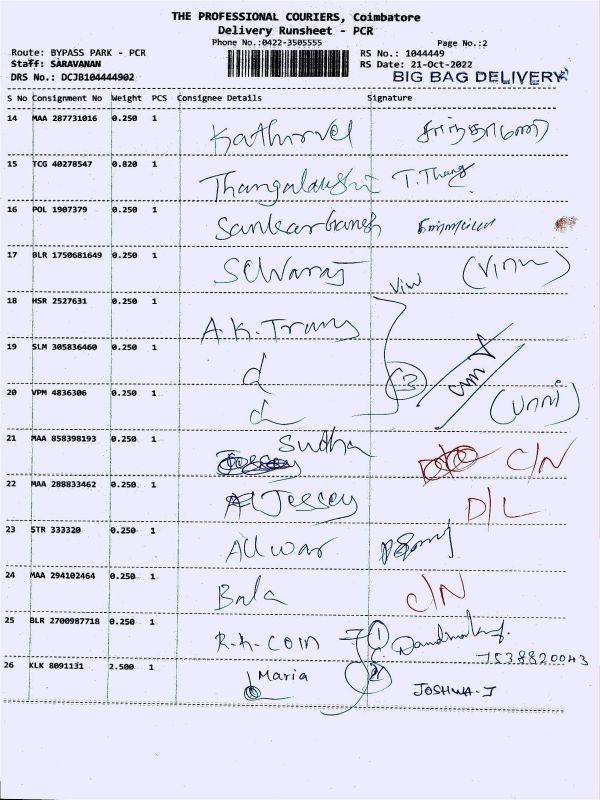 THE PROFESSIONAL COURIERS, Coimbatore
Delivery Runsheet - PCR
Phone No.:0422-3505555
Page No.:2
Route: BYPASS PARK - PCR
RS No.: 1044449
Staff: SARAVANAN
RS Date: 21-Oct-2022
DRS No.: DCJB104444902
BIG BAG DELIVERY
S No Consignment No Weight PCS Consignee Details Signature
14 MAA 287731016 0.250 1 Kathirvel
15 TCG 40278547 0.820 1 Thangalakshmi T. Thang
16 POL 1907379 0.250 1 Sankar Ganesh
17 BLR 1750681649 0.250 1 Selvaraj (Vinu)
18 HSR 2527631 0.250 1 A.K. Trans
19 SLM 305836460 0.250 1 3
20 VPM 4836306 0.250 1 (Unni)
21 MAA 858398193 0.250 1 Sudha C/N
22 MAA 288833462 0.250 1 Jessey D/L
23 STR 333320 0.250 1 Allwar
24 MAA 294102464 0.250 1 Bala C/N
25 BLR 2700987718 0.250 1 R.K. COIN 1
7538820043
26 KLK 8091131 2.500 1 Maria 2 JOSHWA-J